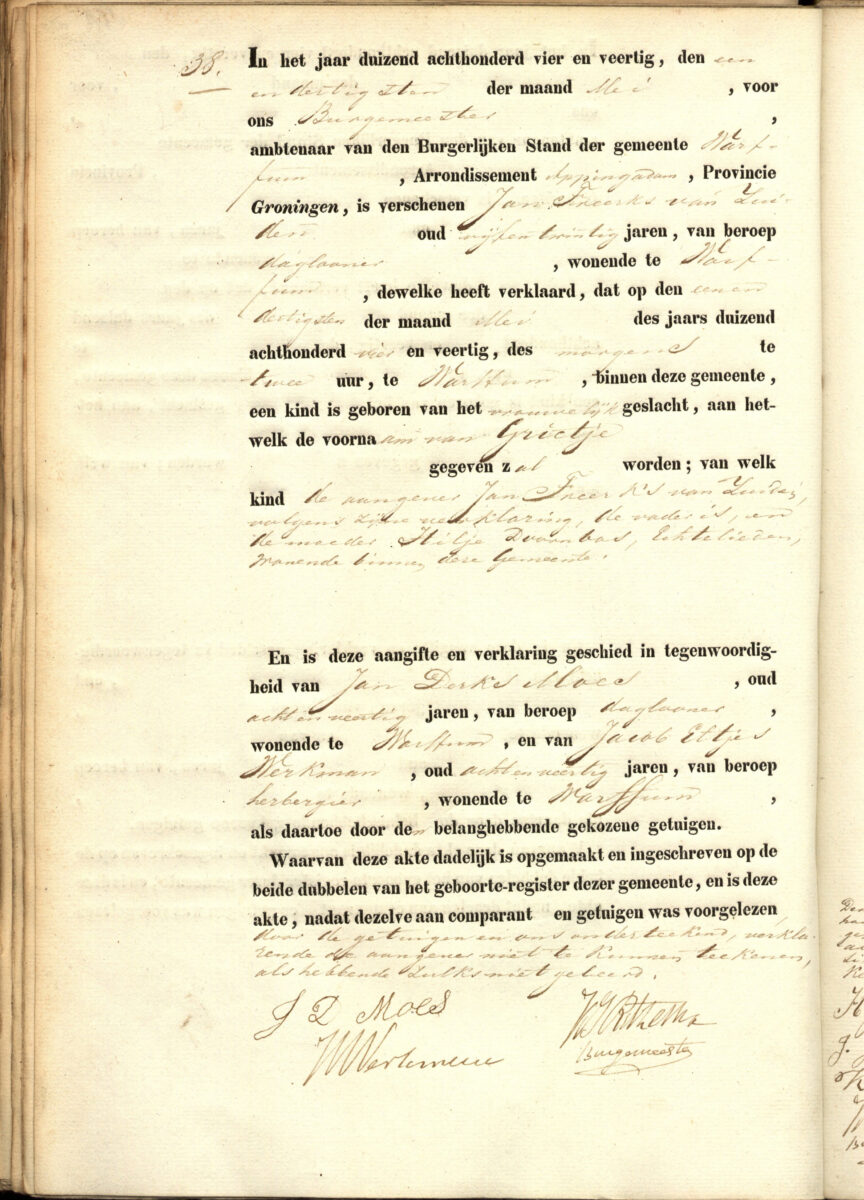 38.
In het jaar duizend achthonderd vier en veertig, den een
en dertigsten der maand Mei , voor
ons Burgemeester ,
ambtenaar van den Burgerlijken Stand der gemeente Warf-
fum , Arrondissement Appingadam , Provincie
Groningen, is verschenen Jan Freerks van Zui-
den oud vijfentwintig jaren, van beroep
daglooner , wonende te Warf-
fum , dewelke heeft verklaard, dat op den eenen
dertigsten der maand Mei des jaars duizend
achthonderd vier en veertig, des morgens te
twee uur, te Warffum , binnen deze gemeente,
een kind is geboren van het vrouwelijk geslacht, aan het-
welk de voornaam van Grietje
gegeven zal worden; van welk
kind de aangever Jan Freerks van Zuiden,
volgens zijne verklaring, de vader is, en
de moeder Hilje Doornbos, Echtelieden,
wonende binnen deze Gemeente.
En is deze aangifte en verklaring geschied in tegenwoordig-
heid van Jan Derks Moes , oud
acht en veertig jaren, van beroep daglooner ,
wonende te Warffum , en van Jacob Eltjes
Werkman , oud acht en veertig jaren, van beroep
herbergier , wonende te Warffum ,
als daartoe door den belanghebbende gekozene getuigen.
Waarvan deze akte dadelijk is opgemaakt en ingeschreven op de
beide dubbelen van het geboorte-register dezer gemeente, en is deze
akte, nadat dezelve aan comparant en getuigen was voorgelezen
door de getuigen en ons onderteekend, verkla-
rende de aangever niet te kunnen teekenen,
als hebbende zulks niet geleerd.
J D Moes
Werkman
Burgemeester